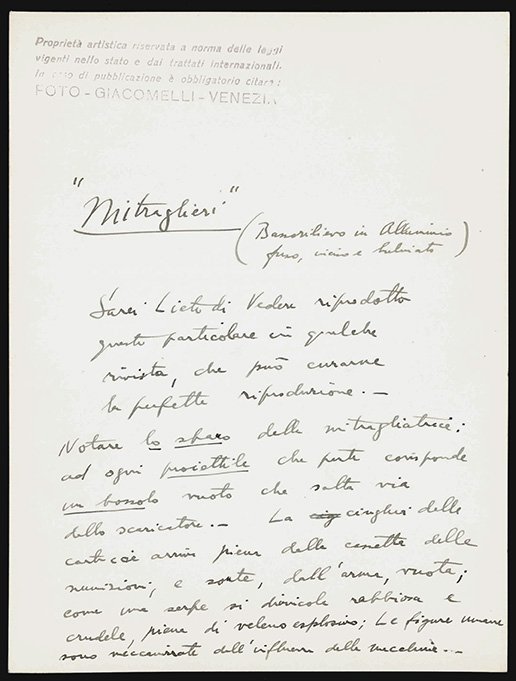 Proprietà artistica riservata a norma delle leggi
vigenti nello stato e dai trattati internazionali.
In caso di pubblicazione è obbligatorio citare:
FOTO - GIACOMELLI - VENEZIA
"Mitraglieri"
(Bassorilievo in Alluminio
fuso, inciso e)
Sarei Lieto di Vedere riprodotto
questo particolare in qualche
rivista, che può curarne
la perfetta riproduzione. —
Notare lo sparo della mitragliatrice:
ad ogni proiettile che parte corrisponde
un bossolo vuoto che salta via
dallo scaricatore. — La cinghia delle
cartucce arriva piena dalla cassetta delle
munizioni, e sorte, dall'arma, vuota;
come una serpe si divincola rabbiosa e
crudele, piena di veleno esplosivo; Le figure umane
sono meccanizzate dall'influenza delle macchine. —